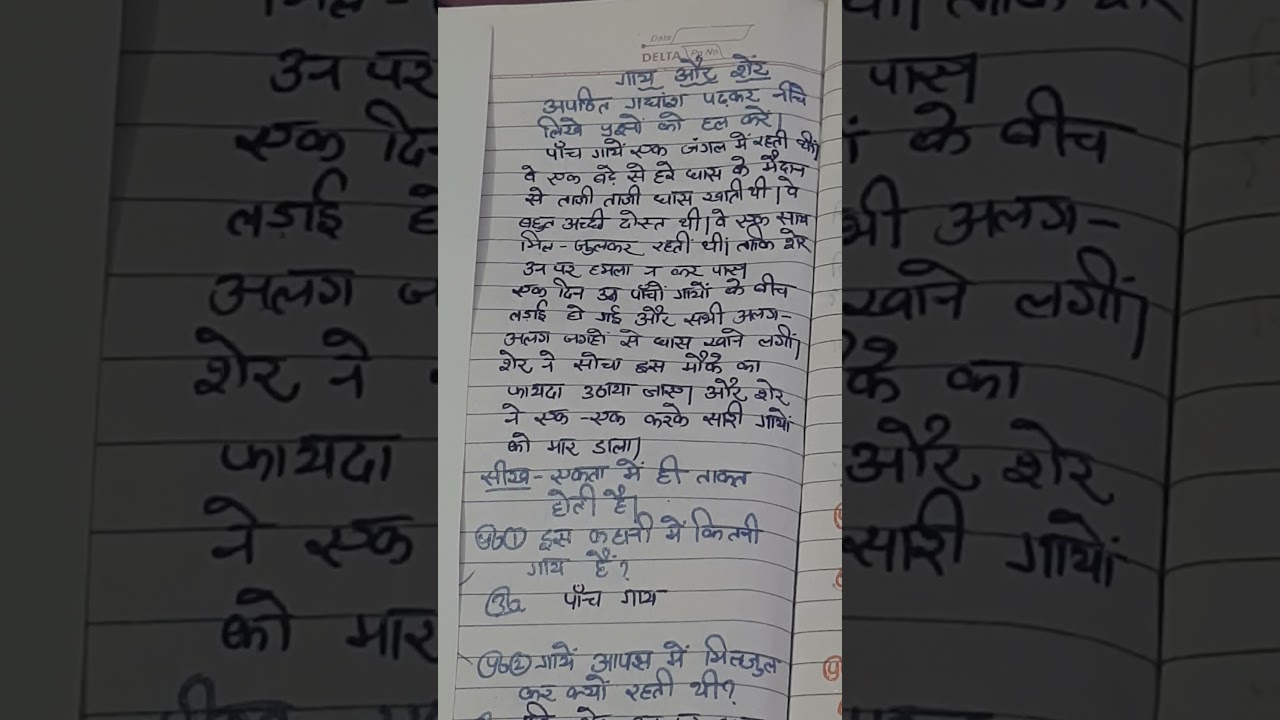 Date
DELTA Pg No
गाय और शेर
अपठित गद्यांश पढ़कर नीचे
लिखे प्रश्नों को हल करें।
पाँच गायें एक जंगल में रहती थीं।
वे एक बड़े से हरे घास के मैदान
से ताजी ताजी घास खाती थी। वे
बहुत अच्छी दोस्त थी। वे एक साथ
मिल-जुलकर रहती थी। ताकि शेर
उन पर हमला न कर पाए
एक दिन उन पाँचों गायों के बीच
लड़ाई हो गई और सभी अलग-
अलग जगहों से घास खाने लगीं।
शेर ने सोचा इस मौके का
फायदा उठाया जाए। और शेर
ने एक-एक करके सारी गायों
को मार डाला।
सीख- एकता में ही ताकत
होती है।
प्र०1 इस कहानी में कितनी
गाय हैं?
उ० पाँच गाय
प्र०2 गायें आपस में मिलजुल
कर क्यों रहती थी?